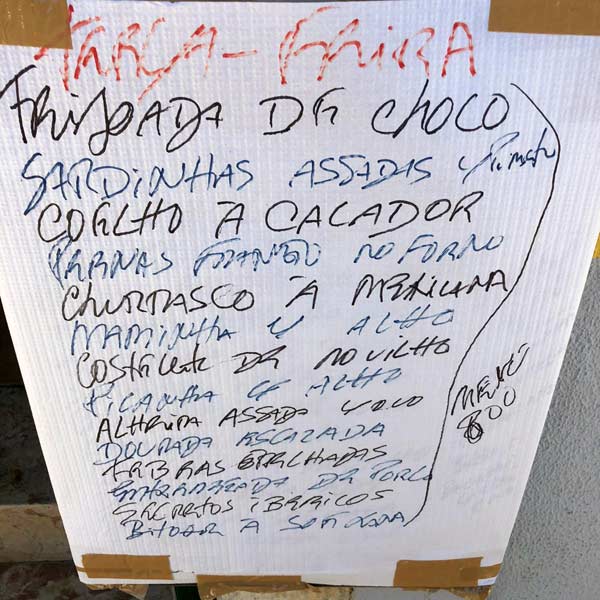 TERÇA-FEIRA
FEIJOADA DE CHOCO
SARDINHAS ASSADAS C/ Pimento
COELHO À CAÇADOR
PERNAS FRANGO NO FORNO
CHURRASCO À MEXICANA
MAMINHA C/ ALHO
COSTELETA DE NOVILHO
PICANHA C/ ALHO
ALHEIRA ASSADA C/ OVO
DOURADA ESCALADA
FEBRAS GRELHADAS
ENTREMEADA DE PORCO
SECRETOS IBERICOS
BITOQUE À
MENU
800